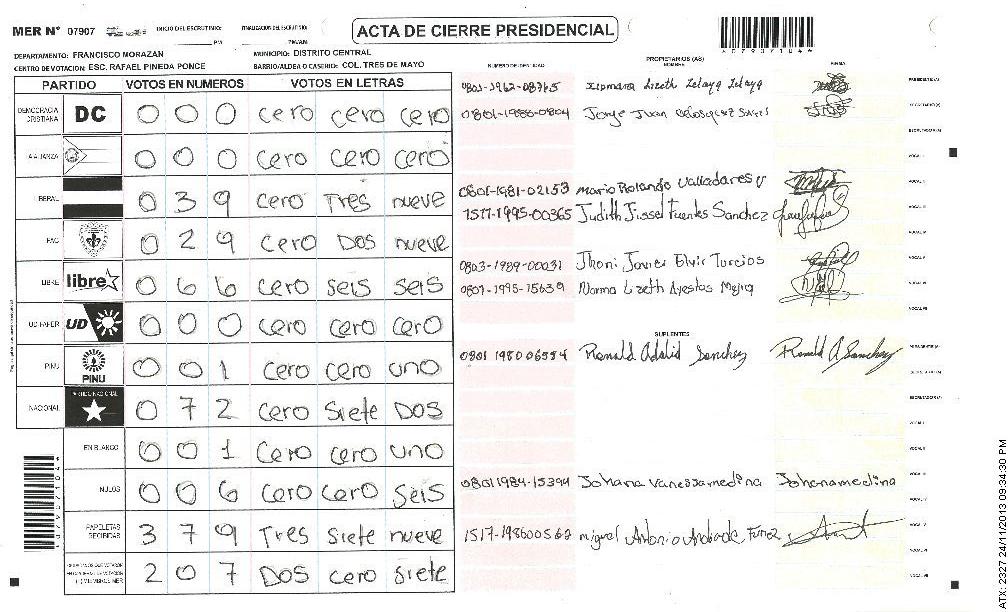 MER N° 07907 INICIO DEL ESCRUTINIO: FINALIZACION DEL ESCRUTINIO:
PM PM/AM
ACTA DE CIERRE PRESIDENCIAL
DEPARTAMENTO: FRANCISCO MORAZAN MUNICIPIO: DISTRITO CENTRAL
CENTRO DE VOTACION: ESC. RAFAEL PINEDA PONCE BARRIO/ALDEA O CASERIO: COL. TRES DE MAYO
PARTIDO VOTOS EN NUMEROS VOTOS EN LETRAS
DEMOCRACIA CRISTIANA DC 0 0 0 cero cero cero
ALIANZA 0 0 0 cero cero cero
BERAL 0 3 9 cero Tres nueve
PAC 0 2 9 cero Dos nueve
LIBRE libre 0 6 6 cero seis seis
UD-FAPER UD 0 0 0 cero cero cero
PINU PINU 0 0 1 cero cero uno
NACIONAL 0 7 2 cero siete Dos
EN BLANCO 0 0 1 cero cero uno
NULOS 0 0 6 cero cero seis
PAPELETAS RECIBIDAS 3 7 9 Tres siete nueve
2 0 7 Dos cero siete
NUMERO DE IDENTIDAD PROPIETARIOS (AS) NOMBRE FIRMA
0801-1962-08765 Xiomara Lizeth Zelaya Zelaya PRESIDENTE(A)
0801-1986-0804 Jorge Juan Velasquez SECRETARIO(A)
ESCRUTADOR(A)
VOCAL I
0801-1981-02153 Mario Rolando Valladares y VOCAL II
1517-1995-00365 Judith Jissel Fuentes Sanchez VOCAL III
VOCAL IV
0803-1989-00031 Jhoni Javier Elvir Turcios VOCAL V
0801-1995-15639 Norma Lizeth Ayestas Mejia VOCAL VI
VOCAL VII
SUPLENTES
0801 1980 06554 Ronald Adalid Sanchez Ronald A Sanchez PRESIDENTE(A)
SECRETARIO(A)
ESCRUTADOR(A)
VOCAL I
VOCAL II
08011984-15394 Johana Vanessa medina Johanamedina VOCAL III
VOCAL IV
1517-198600562 miguel Antonio Andrade Funez VOCAL V
VOCAL VI
VOCAL VII
ATX: 2327 24/11/2013 09:34:30 PM